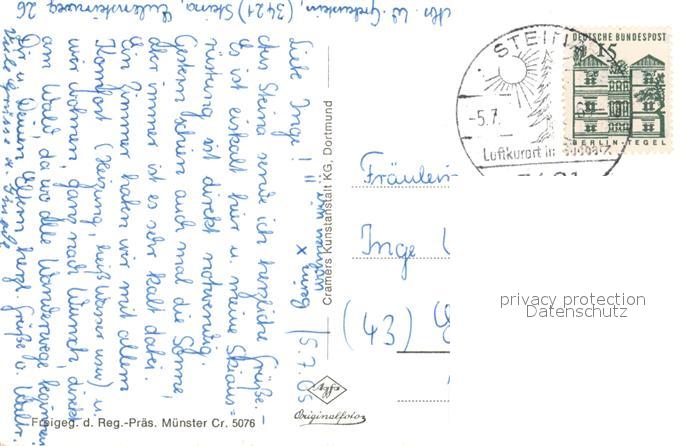 Abs. W. Grebenstein, (3421) Steina, Eulensteinweg 26
Liebe Inge! 5.7.65
Aus Steina sende ich herzliche Grüße. –
Es ist eiskalt hier u. meine Skiaus=
rüstung ist direkt notwendig.
Gestern schien auch mal die Sonne,
aber immer ist es sehr kalt dabei.
Ein Zimmer haben wir mit allem
Komfort (Heizung, heiß Wasser usw.) u.
wir wohnen ganz nach Wunsch, direkt
am Wald, da wo alle Wanderwege
Dir u. Deinen Eltern herzl. Grüße v. Walter
Viele Grüsse
Cramers Kunstanstalt KG, Dortmund
Agfa
Originalfoto
Freigeg. d. Reg.-Präs. Münster Cr. 5076
Fräulein
Inge
(43)
STEINA
-5.7.
Luftkurort im Südharz
3421
DEUTSCHE BUNDESPOST
15
BERLIN-TEGEL
privacy protection
Datenschutz